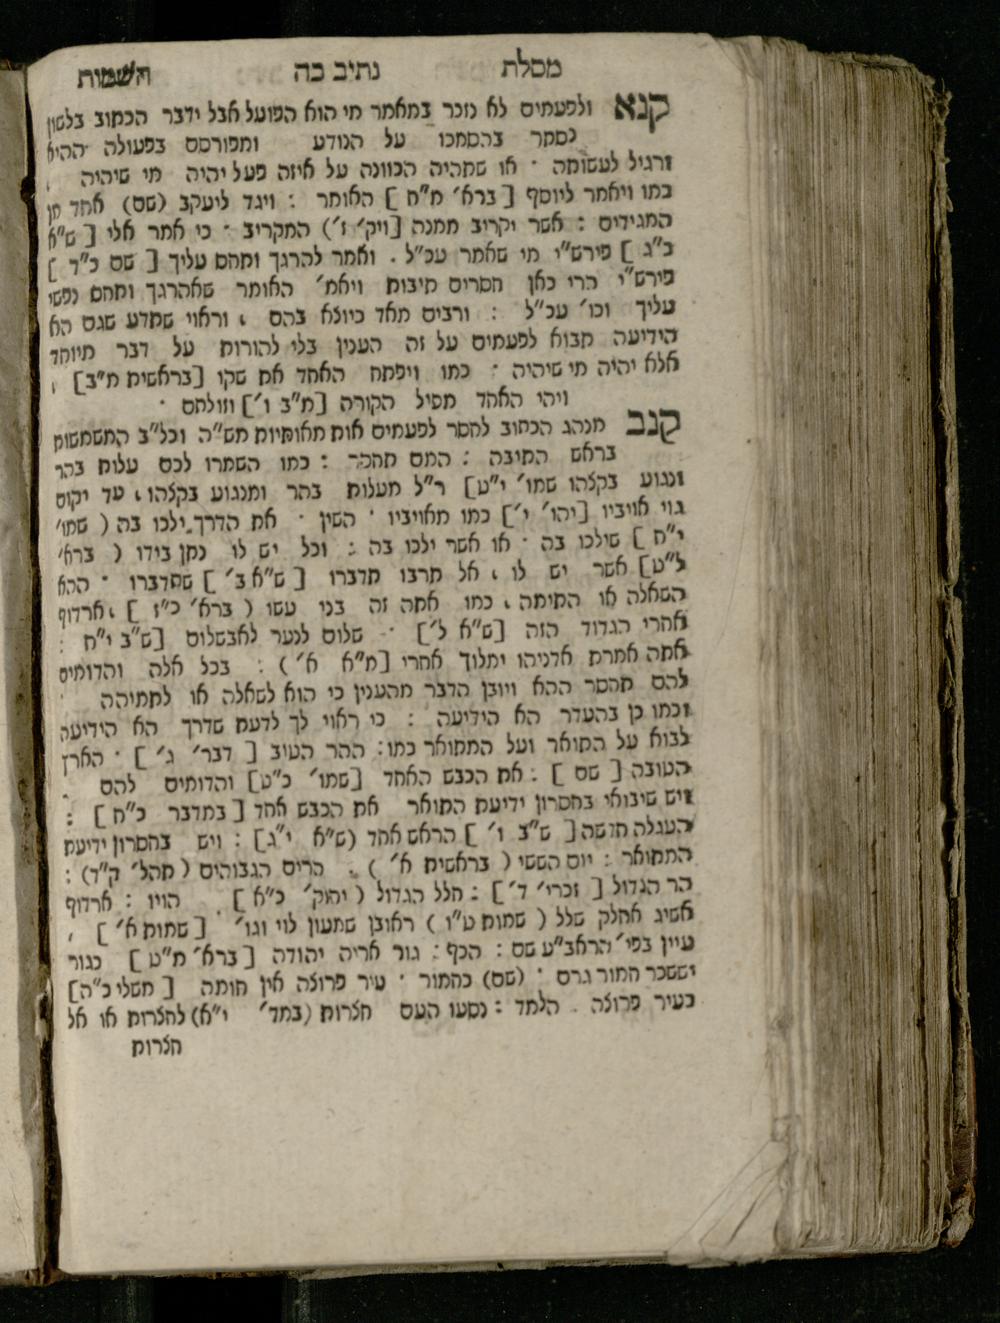 מסלת נתיב כה השמות
קנא ולפעמים לא נזכר במאמר מי הוא הפועל אבל ידבר הכתוב בלשון
נסתר בהסמכו על הנודע ומפורסם בפעולה ההיא
ורגיל לעשותה · או שתהיה הכוונה על איזה פעל יהיה מי שיהיה ,
כמו ויאמר ליוסף [ ברא׳ מ״ח ] האומר : ויגד ליעקב (שם) אחד מן
המגידים : אשר יקריב ממנה [ויק׳ ז׳) המקריב · כי אמר אלי [ ש״א
כ״ג ] פירש״י מי שאמר עכ״ל . ואמר להרגך ותחס עליך [ שם כ״ד ]
פירש״י הרי כאן חסרים תיבות ויאמ׳ האומר שאהרגך ותחס נפשי
עליך וכו׳ עכ״ל : ורבים מאד כיוצא בהם , וראוי שתדע שגם הא
הידיעה תבוא לפעמים על זה הענין בלי להורות על דבר מיוחד
אלא יהיה מי שיהיה · כמו ויפתח האחד את שקו [בראשית מ״ב] ,
ויהי האחד מפיל הקורה [מ״ב ו׳] וזולתם ·
קנב מנהג הכתוב לחסר לפעמים אות מאותיות מש״ה וכל״ב המשמשות
בראש התיבה : המם תחסר : כמו השמרו לכם עלות בהר
ונגוע בקצהו שמו׳ י״ט] ר״ל מעלות בהר ומנגוע בקצהו , עד יקום
גוי אויביו [יהו׳ י׳] כמו מאויביו · השין · את הדרך ילכו בה ( שמו׳
י״ח ] שילכו בה · או אשר ילכו בה : וכל יש לו נתן בידו ( ברא׳
ל״ט] אשר יש לו , אל תרבו תדברו [ ש״א ב׳ ] שתדברו · ההא
השאלה או התימה , כמו אתה זה בני עשו ( ברא׳ כ״ז ] , ארדוף
אחרי הגדוד הזה [ש״א ל׳] · שלום לנער לאבשלום [ש״ב י״ח :
אתה אמרת אדניהו ימלוך אחרי [מ״א א׳ ) : בכל אלה והדומים
להם תחסר ההא ויובן הדבר מהענין כי הוא לשאלה או לתמיהה
וכמו כן בהעדר הא הידיעה : כי ראוי לך לדעת שדרך הא הידיעה
לבוא על התואר ועל המתואר כמו : ההר הטוב [ דבר׳ ג׳ ] · הארץ
הטובה [ שם ] : את הכבש האחד [שמו׳ כ״ט] והדומים להם
ויש שיבואו בחסרון ידיעת התואר את הכבש אחד [ במדבר כ״ח ] :
העגלה חדשה [ ש״ב ו׳ ] הראש אחד (ש״א י״ג] : ויש בחסרון ידיעת
המתואר : יום הששי ( בראשית א׳ ) . הרים הגבוהים ( תהל׳ ק״ד) :
הר הגדול [ זכרי׳ ד׳ ] : חלל הגדול ( יחזק׳ כ״א ] הויו : ארדוף
אשיג אחלק שלל ( שמות ט״ו ) ראובן שמעון לוי וגו׳ [שמות א׳ ] ,
עיין בפי׳ הראב״ע שם : הכף : גור אריה יהודה [ ברא׳ מ״ט ] כגור
יששכר חמור גרם · (שם) כחמור · עיר פרוצה אין חומה [ משלי כ״ה]
כעיר פרוצה . הלמד : נסעו העם חצרות (במד׳ י״א) לחצרות או אל
חצרות